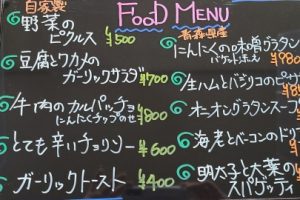 FOOD MENU
自家製
野菜の
ピクルス ¥500
豆腐とワカメの
ガーリックサラダ ¥700
牛肉のカルパッチョ
にんにくチップのせ ¥800
とても辛いチョリソー ¥600
ガーリックトースト ¥400
青森県産
にんにくの味噌グラタン
バケット添え ¥980
生ハムとバジリコのピ
オニオングラタンスープ
海老とベーコンのドリ
明太子と大葉の
スパゲッティ